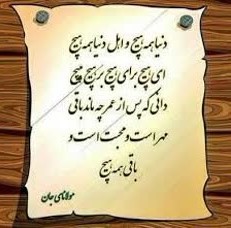 دنیا همه هیچ و اهل دنیا همه هیچ
ای هیچ برای هیچ بر هیچ مپیچ
دانی که پس از عمر چه ماند باقی
مهر است و محبت است و
باقی همه هیچ
مولانای جان